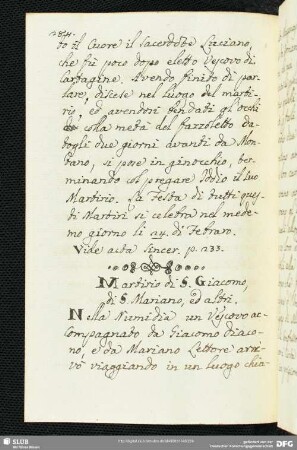 284.
to il Cuore il sacerdote Luciano,
che fù poco dopo eletto Vescovo di
Cartagine. Avendo finito di par-
lare, discese nel luogo del marti-
rio, ed avendosi bendati gl'occhi
colla metà del fazzoletto da-
togli due giorni avanti da Mon-
tano, si pose in ginocchio, ter-
minando col pregare Iddio il suo
Martirio. La Festa di tutti ques-
ti Martiri si celebra nel mede-
mo giorno li 24. di Febraro.
Vide acta sincer. p. 233.
Martirio di S. Giacomo,
di S. Mariano, ed altri.
Nella Numidia un Vescovo ac-
compagnato da Giacomo Diaco-
no, e da Mariano Lettore arri-
vò viaggiando in un luogo chia-
SLUB
Wir führen Wissen.